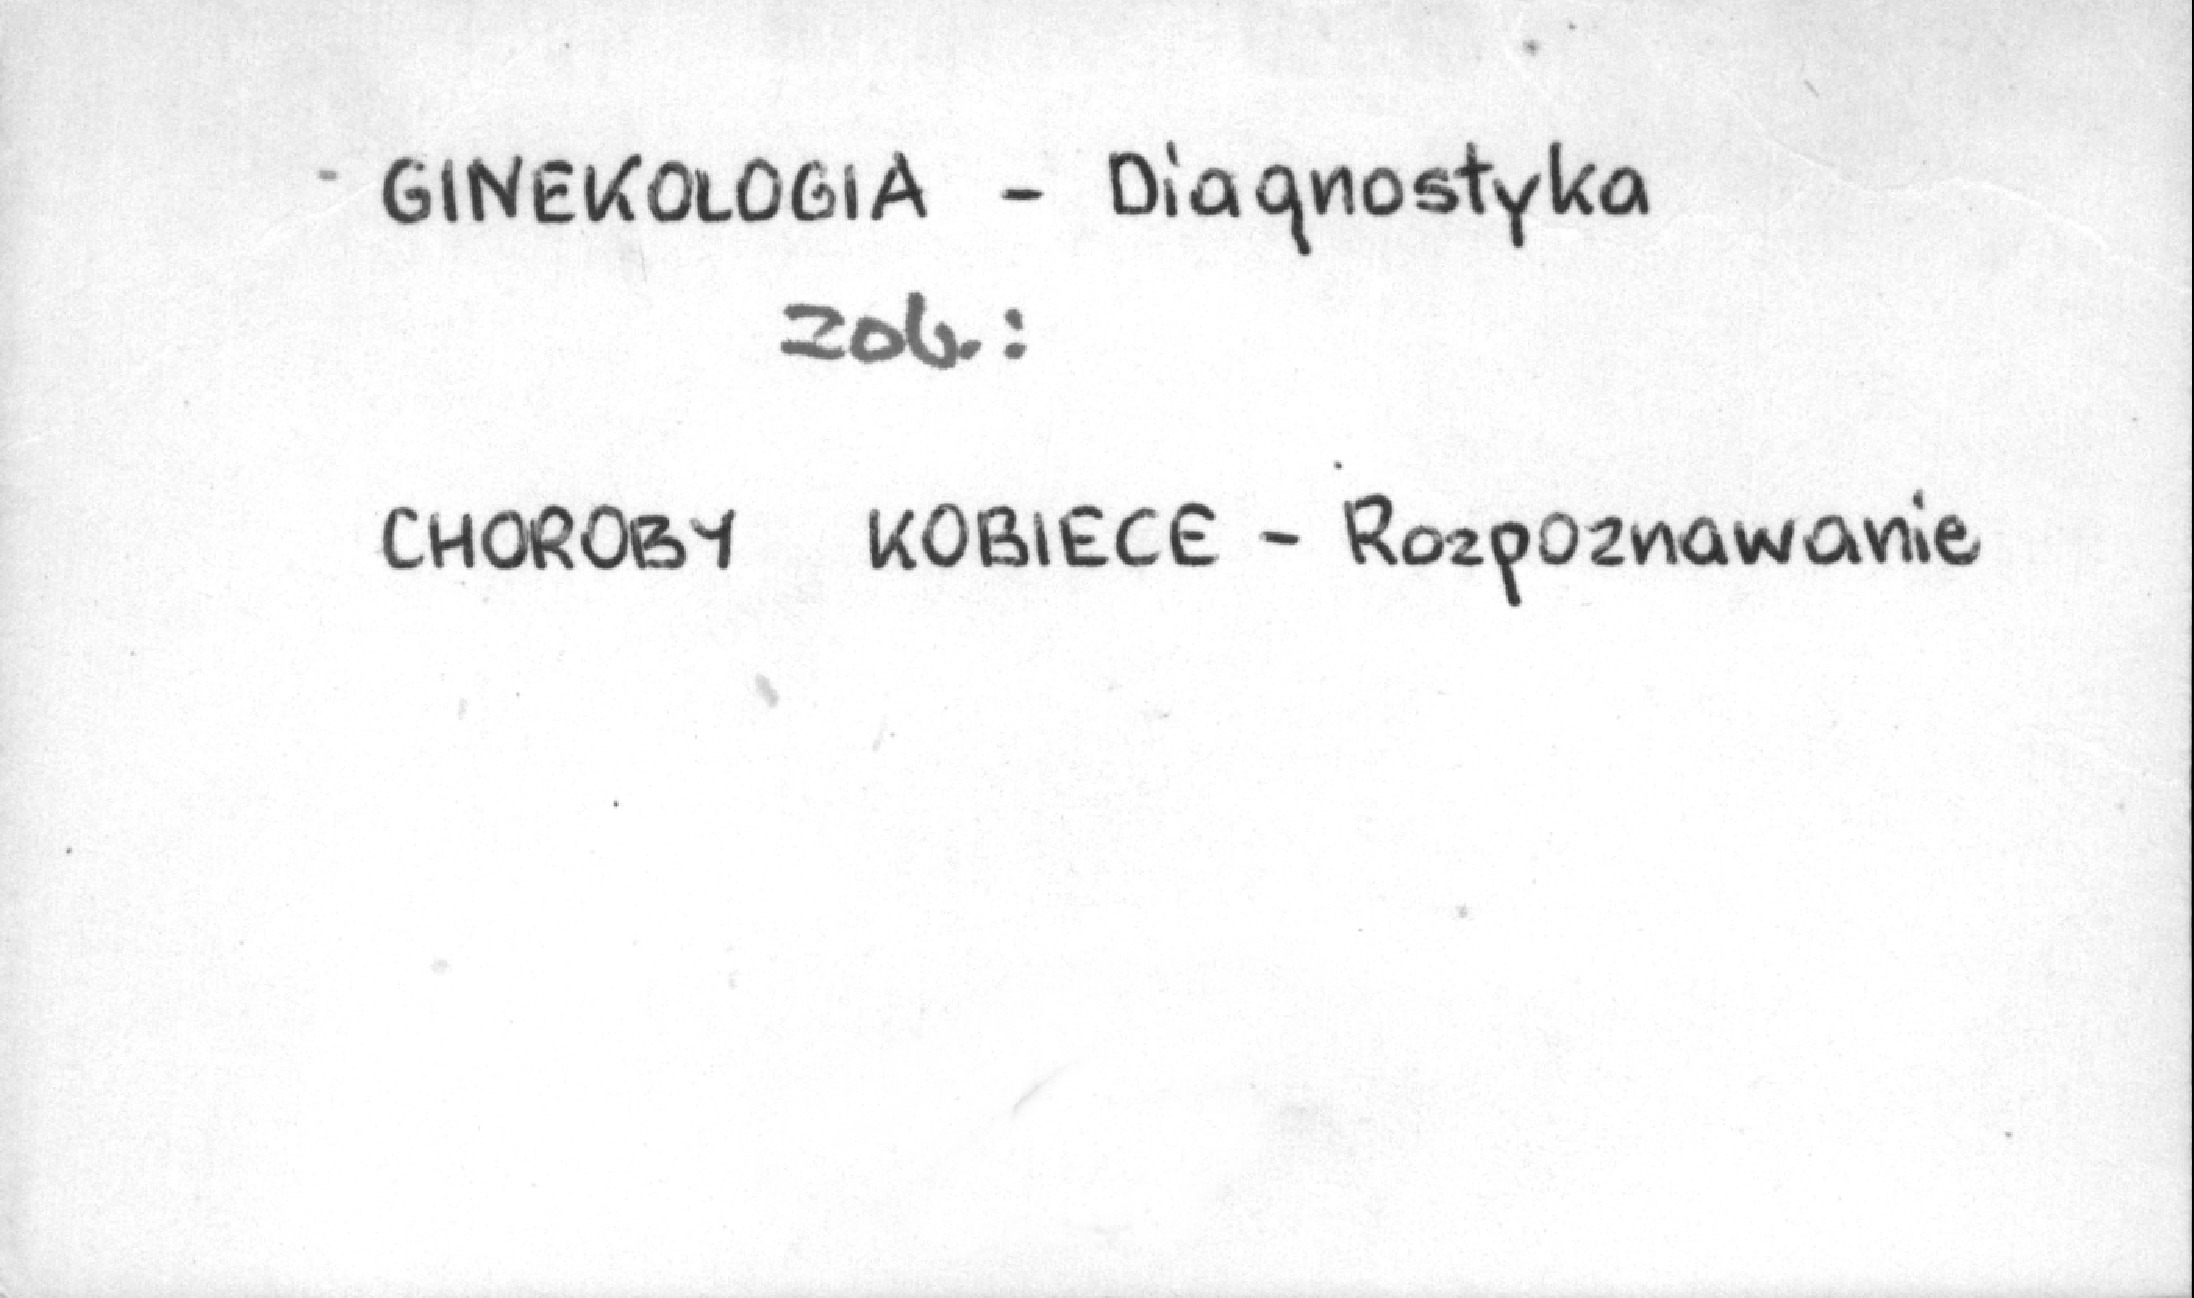 GINEKOLOGIA - Diagnostyka
zob.:
CHOROBY KOBIECE - Rozpoznawanie